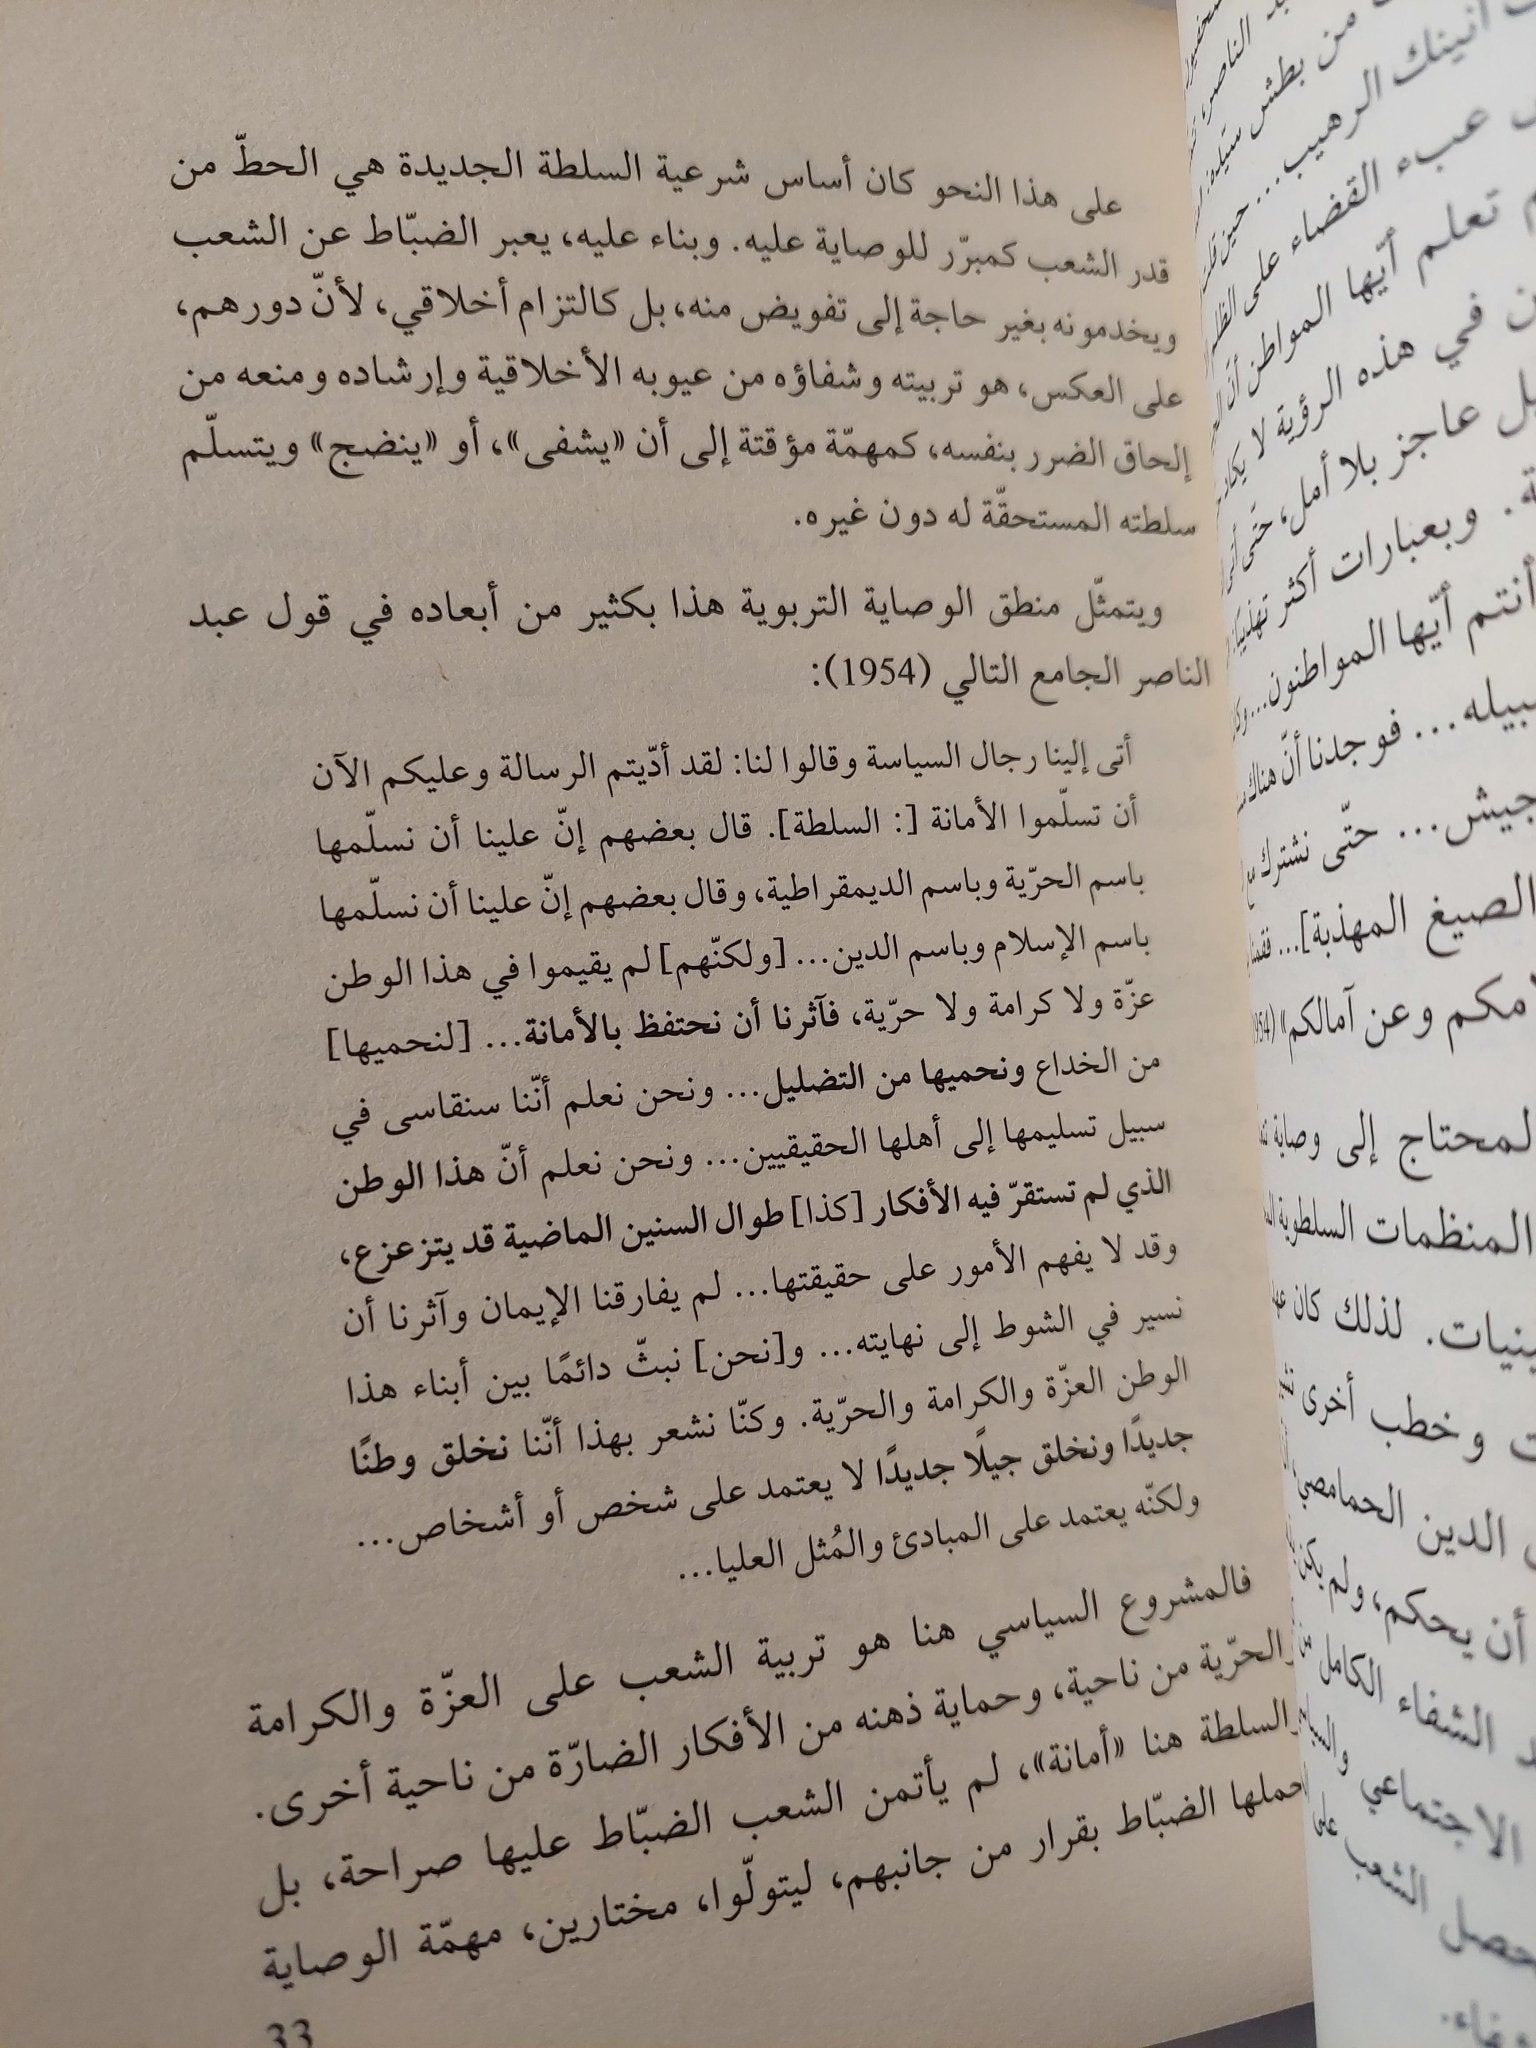 على هذا النحو كان أساس شرعية السلطة الجديدة هي الحطّ من
قدر الشعب كمبرّر للوصاية عليه. وبناء عليه، يعبر الضبّاط عن الشعب
ويخدمونه بغير حاجة إلى تفويض منه، بل كالتزام أخلاقي، لأنّ دورهم،
على العكس، هو تربيته وشفاؤه من عيوبه الأخلاقية وإرشاده ومنعه من
إلحاق الضرر بنفسه، كمهمّة مؤقتة إلى أن «يشفى»، أو «ينضج» ويتسلّم
سلطته المستحقّة له دون غيره.
ويتمثّل منطق الوصاية التربوية هذا بكثير من أبعاده في قول عبد
الناصر الجامع التالي (1954):
أتى إلينا رجال السياسة وقالوا لنا: لقد أدّيتم الرسالة وعليكم الآن
أن تسلّموا الأمانة [: السلطة]. قال بعضهم إنّ علينا أن نسلّمها
باسم الحرّية وباسم الديمقراطية، وقال بعضهم إنّ علينا أن نسلّمها
باسم الإسلام وباسم الدين... [ولكنّهم] لم يقيموا في هذا الوطن
عزّة ولا كرامة ولا حرّية، فآثرنا أن نحتفظ بالأمانة... [لنحميها]
من الخداع ونحميها من التضليل... ونحن نعلم أنّنا سنقاسى في
سبيل تسليمها إلى أهلها الحقيقيين... ونحن نعلم أنّ هذا الوطن
الذي لم تستقرّ فيه الأفكار [كذا] طوال السنين الماضية قد يتزعزع،
وقد لا يفهم الأمور على حقيقتها... لم يفارقنا الإيمان وآثرنا أن
نسير في الشوط إلى نهايته... و[نحن] نبثّ دائمًا بين أبناء هذا
الوطن العزّة والكرامة والحرّية. وكنّا نشعر بهذا أنّنا نخلق وطنًا
جديدًا ونخلق جيلًا جديدًا لا يعتمد على شخص أو أشخاص...
ولكنّه يعتمد على المبادئ والمُثل العليا...
فالمشروع السياسي هنا هو تربية الشعب على العزّة والكرامة
والحرّية من ناحية، وحماية ذهنه من الأفكار الضارّة من ناحية أخرى.
والسلطة هنا «أمانة»، لم يأتمن الشعب الضبّاط عليها صراحة، بل
حملها الضبّاط بقرار من جانبهم، ليتولّوا، مختارين، مهمّة الوصاية
33
من بطش
أنينك الرهيب... حين
عبء القضاء على
تعلم أيّها المواطن أنّ
في هذه الرؤية لا يكاد
عاجز بلا أمل، حتّى أتى
وبعبارات أكثر تهذيبًا
أنتم أيّها المواطنون...
فوجدنا أنّ هناك
حتّى نشترك
الصيغ المهذبة]...
وعن آمالكم»
إلى وصاية
المنظمات السلطوية
لذلك كان
وخطب أخرى
الدين الحمامصي
أن يحكم، ولم يكن
الشفاء الكامل
الاجتماعي
الشعب على